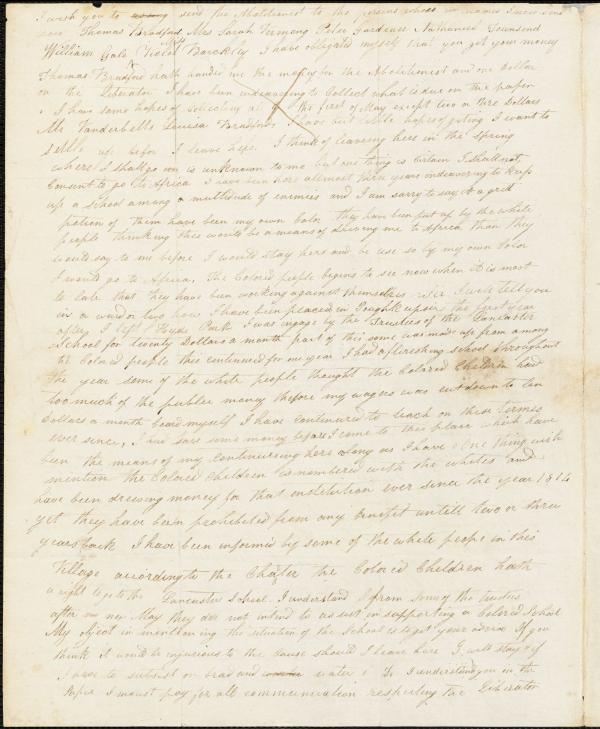 I wish you to send five Abolitionest to the persons whose names I
Thomas Bradford, Mrs Sarah Peter Gardener Nathaniel Townsend
William Gale Violet Barckly I have obligated myself that you get your money
Thomas Bradford hath handed me the money for the Abolitionest and one Dollar
on the Liberator I have been indeavouring to Collect what is due on the paper
I have some hopes of Collecting all by the first of May except two or thre Dollars
Mr Vanderbelts Louisa Bradford I have but little hopes of geting I want to
settle up befor I leave here. I think of leaveing here in the spring
where I shall go on is unknown to me but one thing is certain I shall not
Consent to go to Africa I have been here allmost thre years indeavering to keep
up a school among a multitude of enemies and I am sarry to say that a grat
potion of them have been my own Color they have been put up by the white
people thinking this would be a means of driveing me to Africa then they
would say to me before I would stay here and be use so by my own Color
I would go to Africa. The Colored people begins to see now when it is most
to late that they have been working against themselves Sir I will tell you
in a word or two how I have been placed in Poughkeepsie the first year
after I left Hyde Park I was ingage by the Trustees of the Lancaster
School for twenty Dollars a month part of this some was made up from among
the Colored people this continued for one year I had a flireshing school throughout
the year some of the white people thought the Colored Children had
too much of the public money therefore my wages was cut down to ten
Dollars a month board myself I have continured to teach on these termes
ever since, I had save some money before I come to this place which have
been the means of my continuering here as long as I have One thing I wish
mention the Colored Children is numbered with the whites and
have been drewing money for that institution ever since the year 1814
yet they have been prohibeted from any benefit untill two or thre
years back I have been informed by some of the white peope in this
Village according to the Charter the Colored Children hath
a right to go to the Lancaster School. I understand from some of the trustees
after on new May they dos not intend to assist in supporting a Colored School
My object in mentioning the situation of the School is to get your advice If you
think it would be injurious to the Cause should I leave here I will stay if
I have to subsist on bread and water Sir I understand you in the
paper I must pay for all communication respecting the Liberator